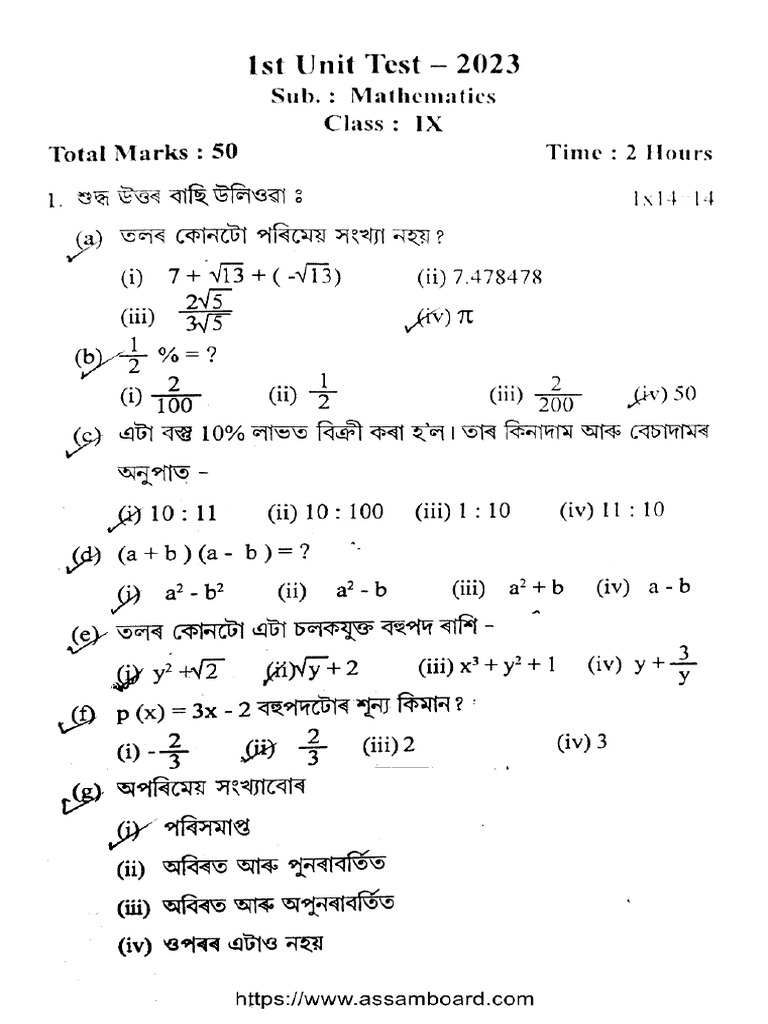 1st Unit Test – 2023
Sub. : Mathematics
Class : IX
Total Marks : 50 Time : 2 Hours
1. শুদ্ধ উত্তৰ বাছি উলিওৱা ঃ 1x14=14
(a) তলৰ কোনটো পৰিমেয় সংখ্যা নহয় ?
(i) 7 + √13 + ( -√13) (ii) 7.478478
(iii) 2√5/3√5 (iv) π
(b) 1/2 % = ?
(i) 2/100 (ii) 1/2 (iii) 2/200 (iv) 50
(c) এটা বস্তু 10% লাভত বিক্ৰী কৰা হ'ল। তাৰ কিনাদাম আৰু বেচাদামৰ
অনুপাত –
(i) 10 : 11 (ii) 10 : 100 (iii) 1 : 10 (iv) 11 : 10
(d) (a + b ) (a - b ) = ?
(i) a² - b² (ii) a² - b (iii) a² + b (iv) a - b
(e) তলৰ কোনটো এটা চলকযুক্ত বহুপদ ৰাশি –
(i) y² +√2 (ii) √y + 2 (iii) x³ + y² + 1 (iv) y + 3/y
(f) p (x) = 3x - 2 বহুপদটোৰ শূন্য কিমান ?
(i) - 2/3 (ii) 2/3 (iii) 2 (iv) 3
(g) অপৰিমেয় সংখ্যাবোৰ
(i) পৰিসমাপ্ত
(ii) অবিৰত আৰু পুনৰাবৰ্তিত
(iii) অবিৰত আৰু অপুনৰাবৰ্তিত
(iv) ওপৰৰ এটাও নহয়
https://www.assamboard.com